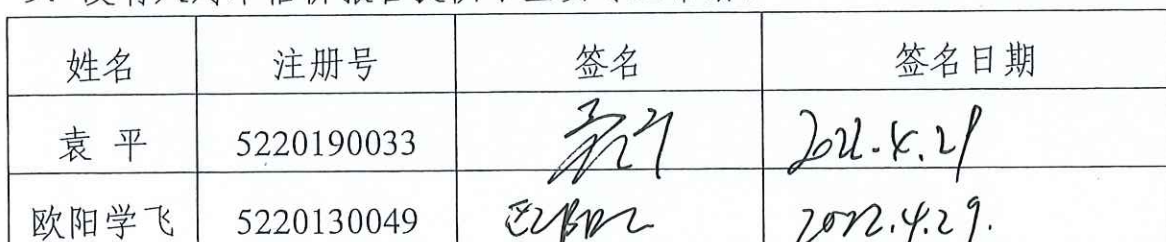 姓名 注册号 签名 签名日期
袁平 5220190033 2022.4.29
欧阳学飞 5220130049 2022.4.29.